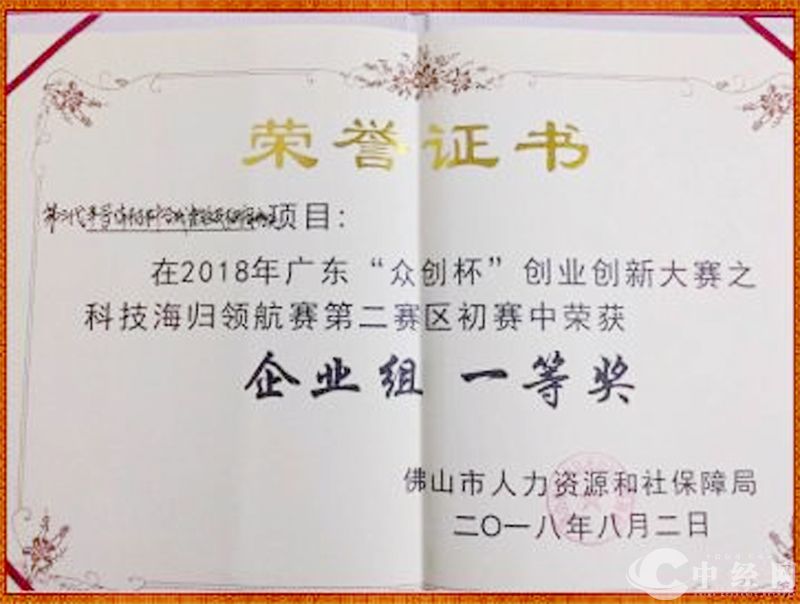 荣誉证书
项目：
在2018年广东“众创杯”创业创新大赛之
科技海归领航赛第二赛区初赛中荣获
企业组 一等奖
佛山市人力资源和社保障局
二〇一八年八月二日
中经网